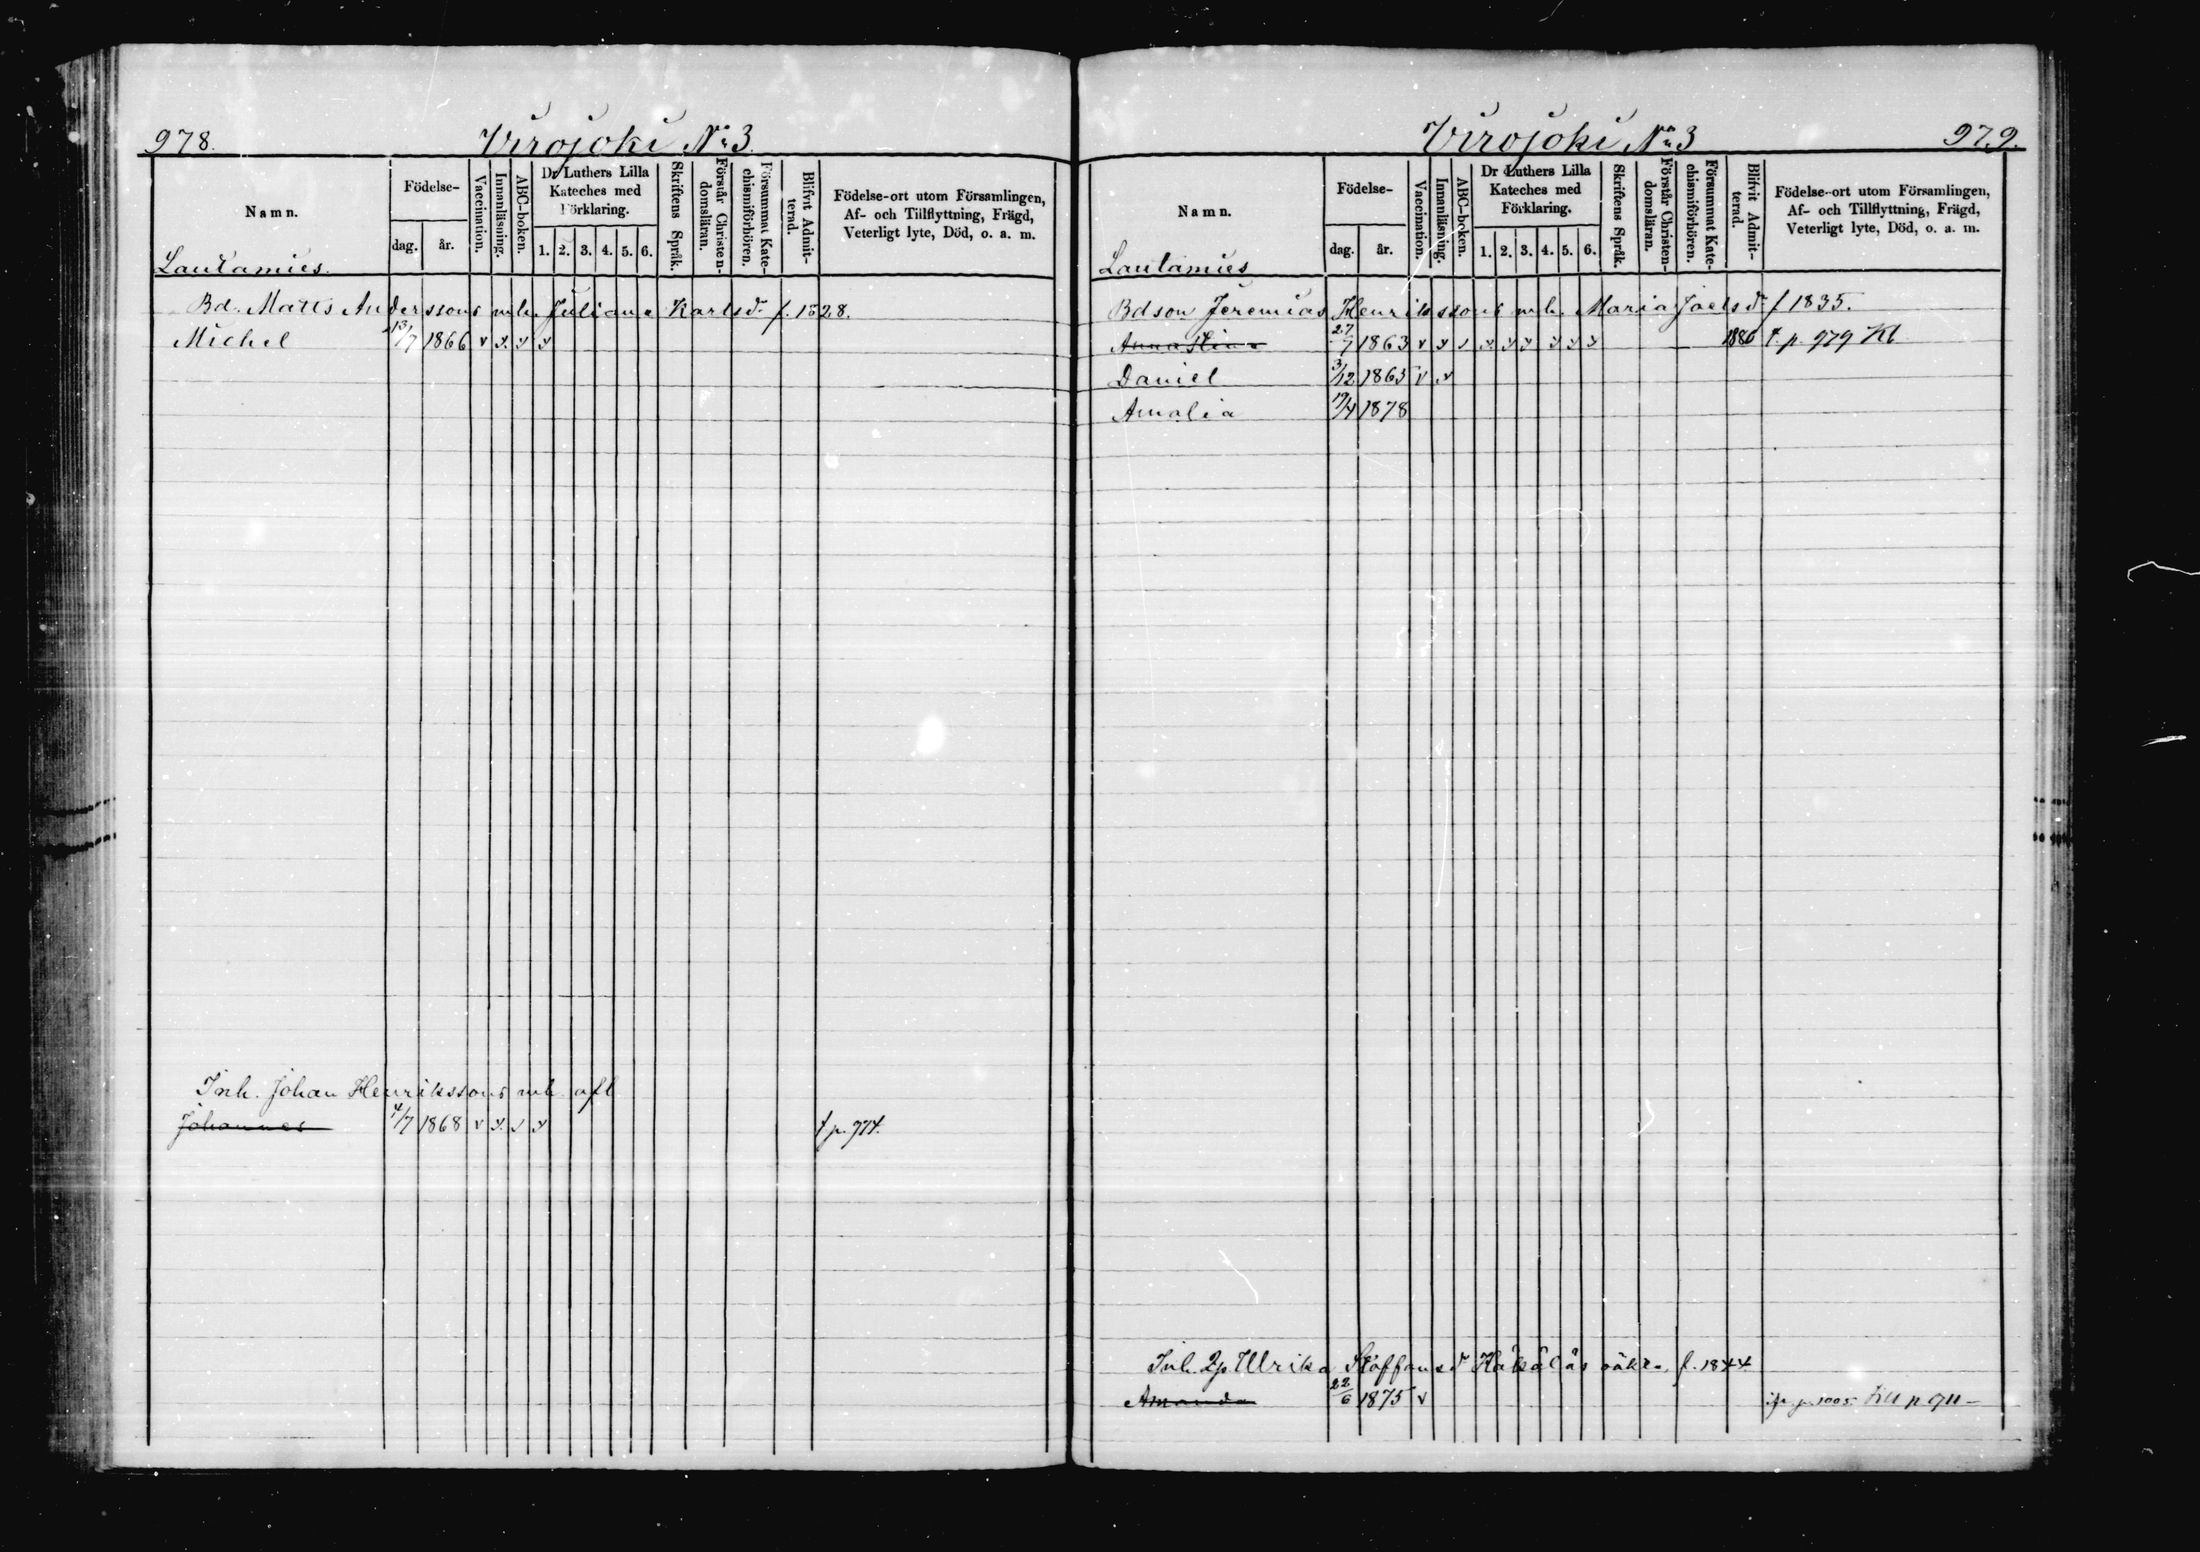 978.
Virojoki No 3.
Namn.
Födelse-
dag. år.
Vaccination.
Innanläsning.
ABC-boken.
Dr Luthers Lilla
Kateches med
Förklaring.
1. 2. 3. 4. 5. 6.
Skriftens Språk.
Förstår Christen-
domsläran.
Försummat Kate-
chismiförhören.
Blifvit Admit-
terad.
Födelse-ort utom Församlingen,
Af- och Tillflyttning, Frägd,
Veterligt lyte, Död, o. a. m.
Lautamies.
Bd. Matts Anderssons mh. Juliana Karlsdr f. 1828.
Michel 13/7 1866 v v. v v
Inh. Johan Henrikssons mh afl
Johannes 4/7 1868 v v. v v f p. 974.
Virojoki No 3
979.
Namn.
Födelse-
dag. år.
Vaccination.
Innanläsning.
ABC-boken.
Dr Luthers Lilla
Kateches med
Förklaring.
1. 2. 3. 4. 5. 6.
Skriftens Språk.
Förstår Christen-
domsläran.
Försummat Kate-
chismiförhören.
Blifvit Admit-
terad.
Födelse-ort utom Församlingen,
Af- och Tillflyttning, Frägd,
Veterligt lyte, Död, o. a. m.
Lautamies
Bdson Jeremias Henrikssons mh. Maria Joelsdr f 1835.
Anna Stina 27/7 1863 v v v v v v v v v 1880 t. p. 979 Kb
Daniel 3/12 1865 v v
Amalia 19/4 1878
Inh. Qp Ulrika Staffansdr f. 1844
Amanda 22/6 1875 v p. 1005 till p 911 –